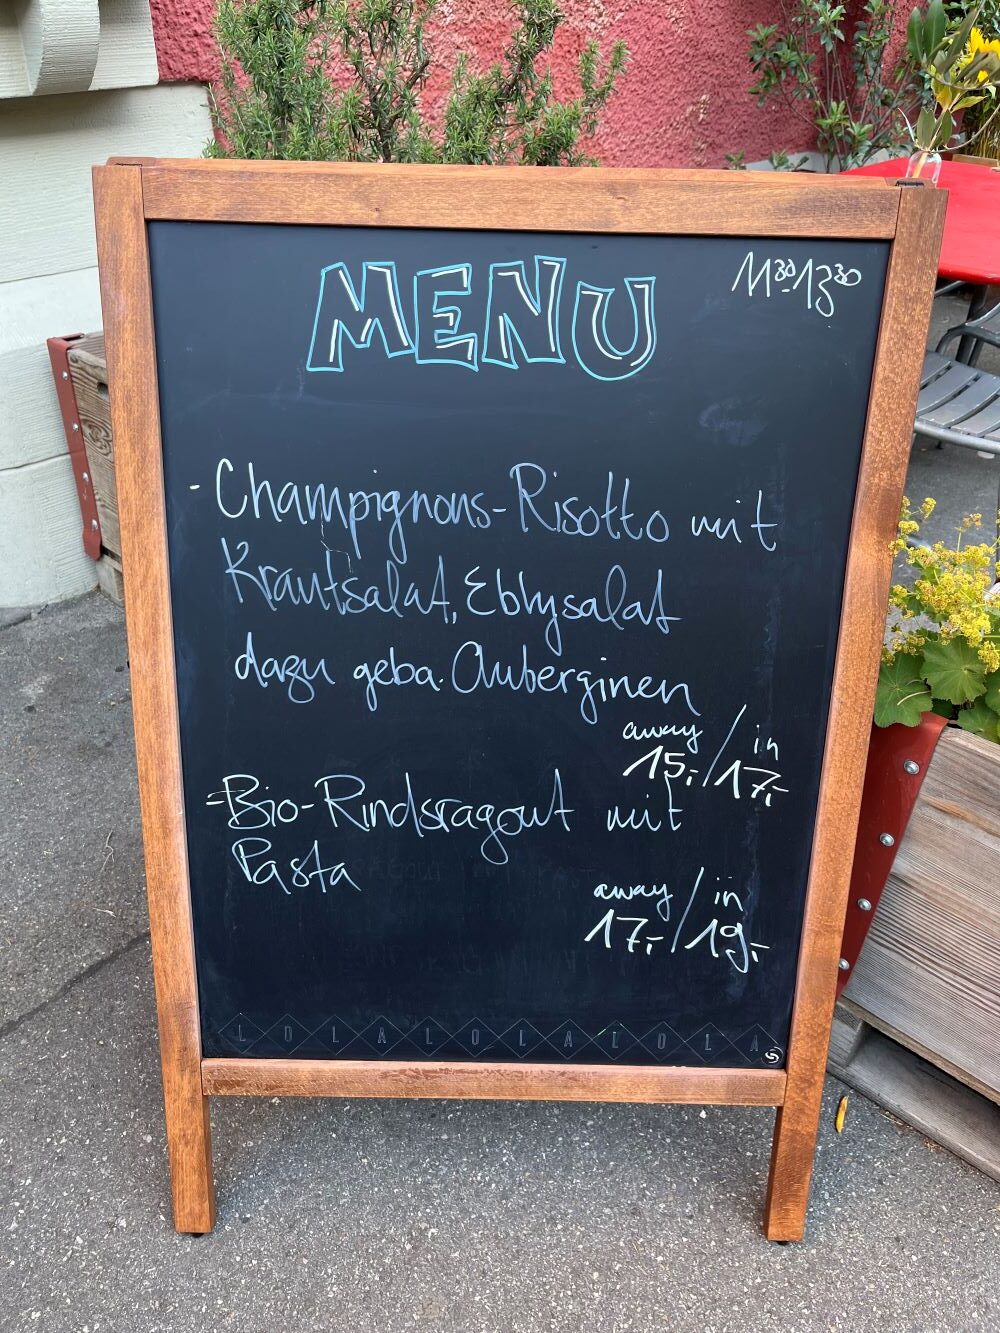 MENU
11³⁰-13³⁰
- Champignons-Risotto mit
Krautsalat, Eblysalat
dazu geba. Auberginen
away / in
15.- / 17.-
- Bio-Rindsragout mit
Pasta
away / in
17.- / 19.-
LOLALOLALOLA